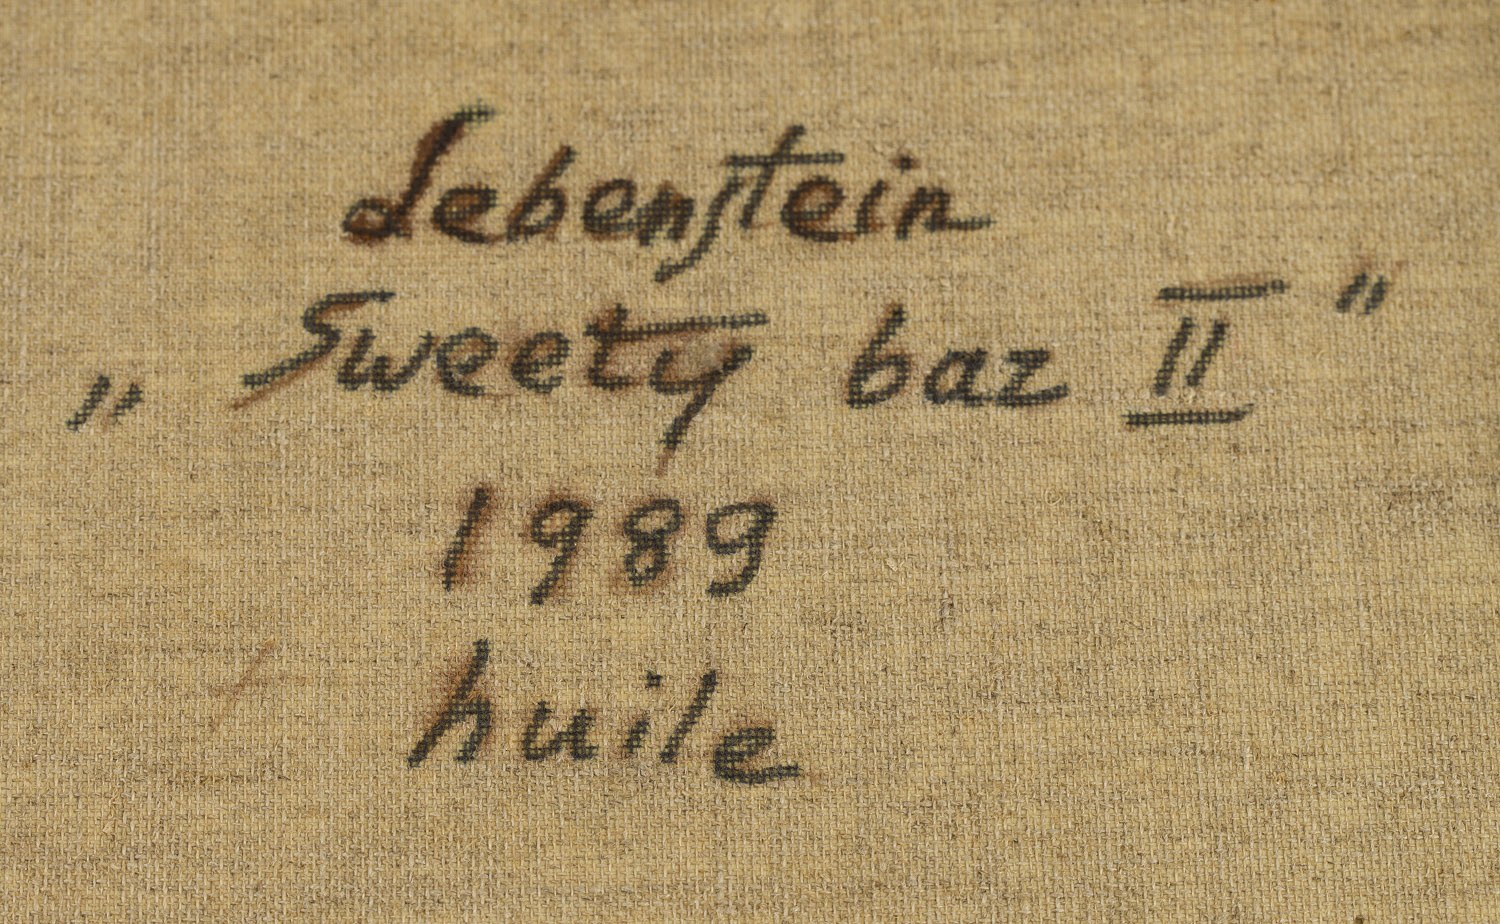 Lebenstein
„Sweety baz II"
1989
huile